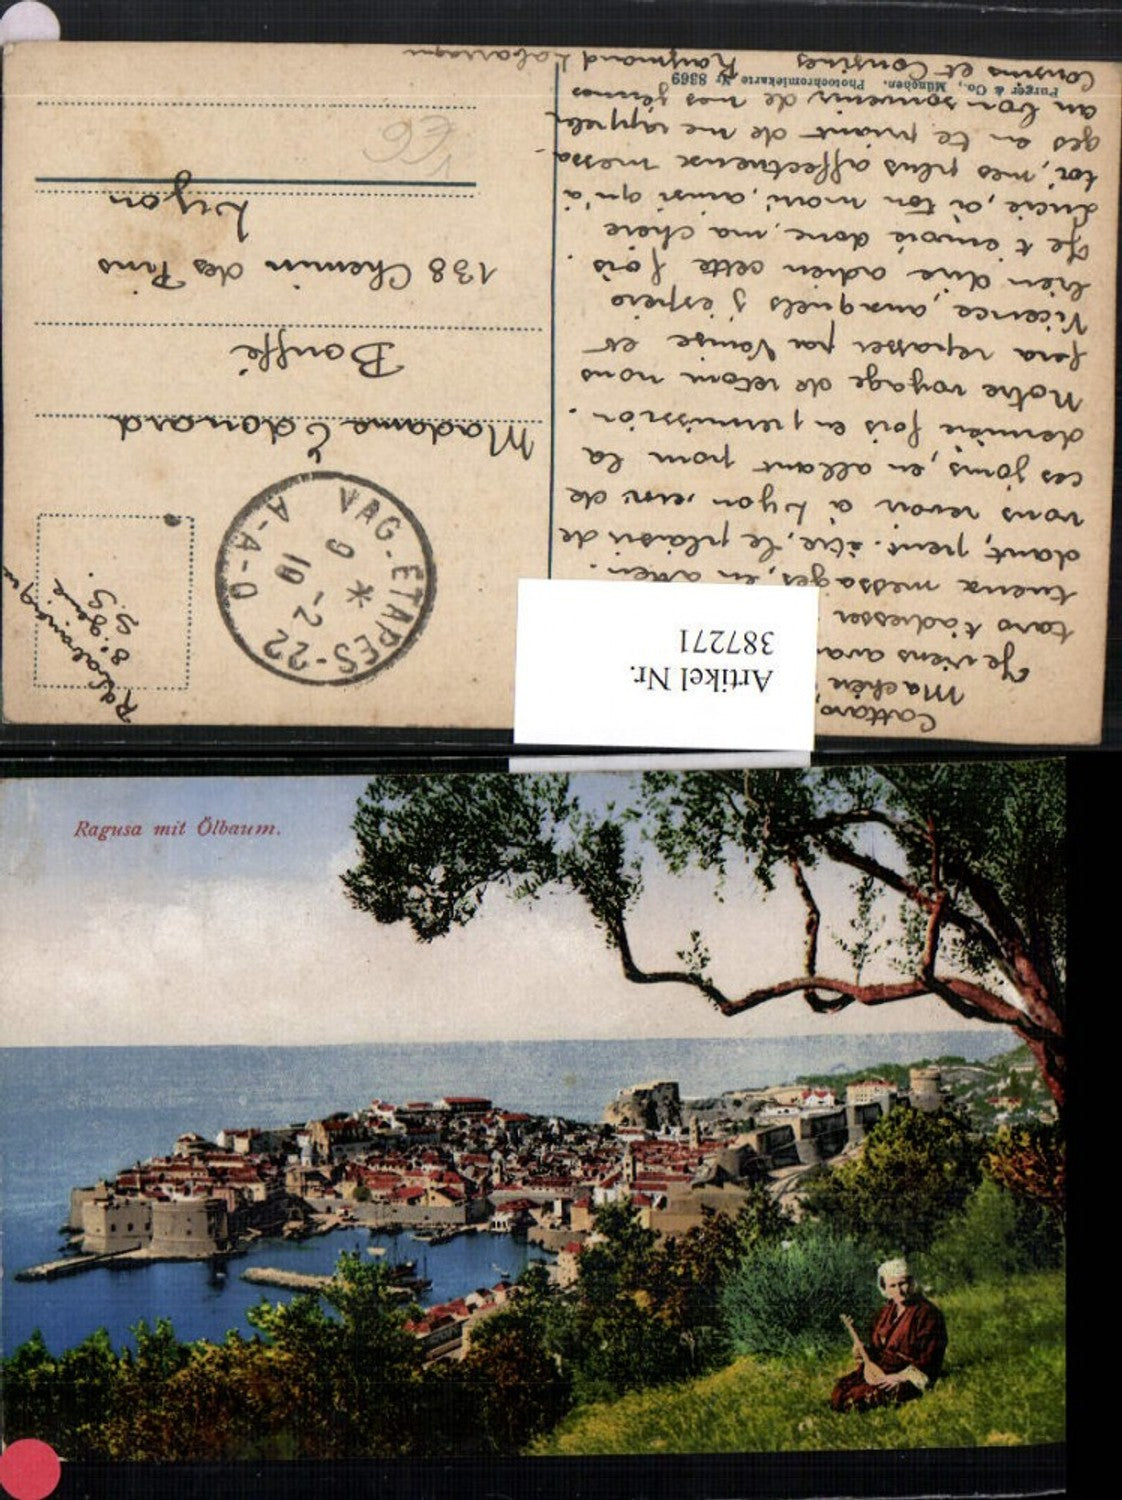 Cattaro,
Ma chèr
Je viens avan
taro t'adresser
tueux messages, en atten.
dant, peut-être, le plaisir de
vous revoir à Lyon, un de
ces jours, en allant pour la
dernière fois en permission.
Notre voyage de retour nous
fera repasser par Venise et
Vicence, auxquels j'espère
bien dire adieu cette fois.
Je t'envoie donc, ma chère
Lucie, à ton mari, ainsi qu'à
toi, mes plus affectueux messa-
ges en te priant de me rappeler
au bon souvenir de mes jeunes
Cousins et Cousines Raymond
Purger & Co., München. Photochromiekarte Nr 8369
VAG-ETAPES-22
9 *
10-2
A-A-O
S.S.
Madame Edouard
Bouffé
138 Chemin des Pins
Lyon
Artikel Nr.
387271
Ragusa mit Ölbaum.